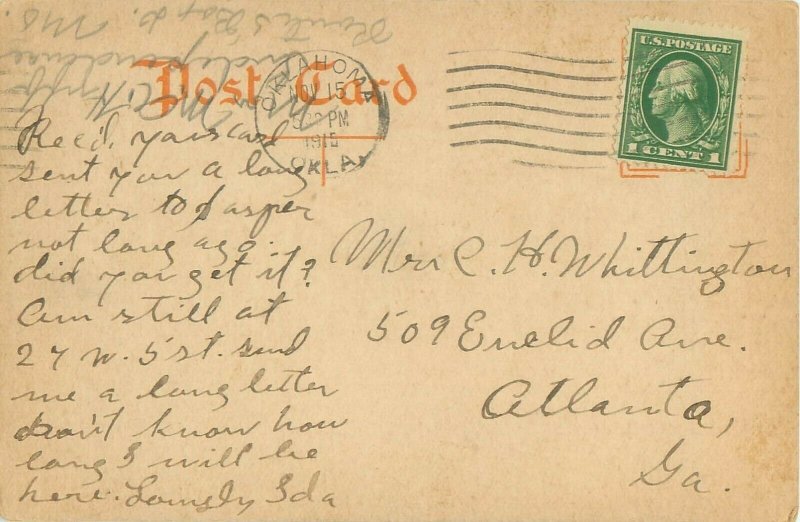 Post Card
OKLAHOMA
NOV 15
PM
OKLA.
U.S. POSTAGE
1 CENT 1
Rec'd, your card
sent you a long
letter to Jasper
not long ago.
did you get it?
Am still at
27 W. 5 st. send
me a long letter
don't know how
long I will be
here. Lovingly Ida
Mrs C. H. Whittington
509 Euclid Ave.
Atlanta,
Ga.